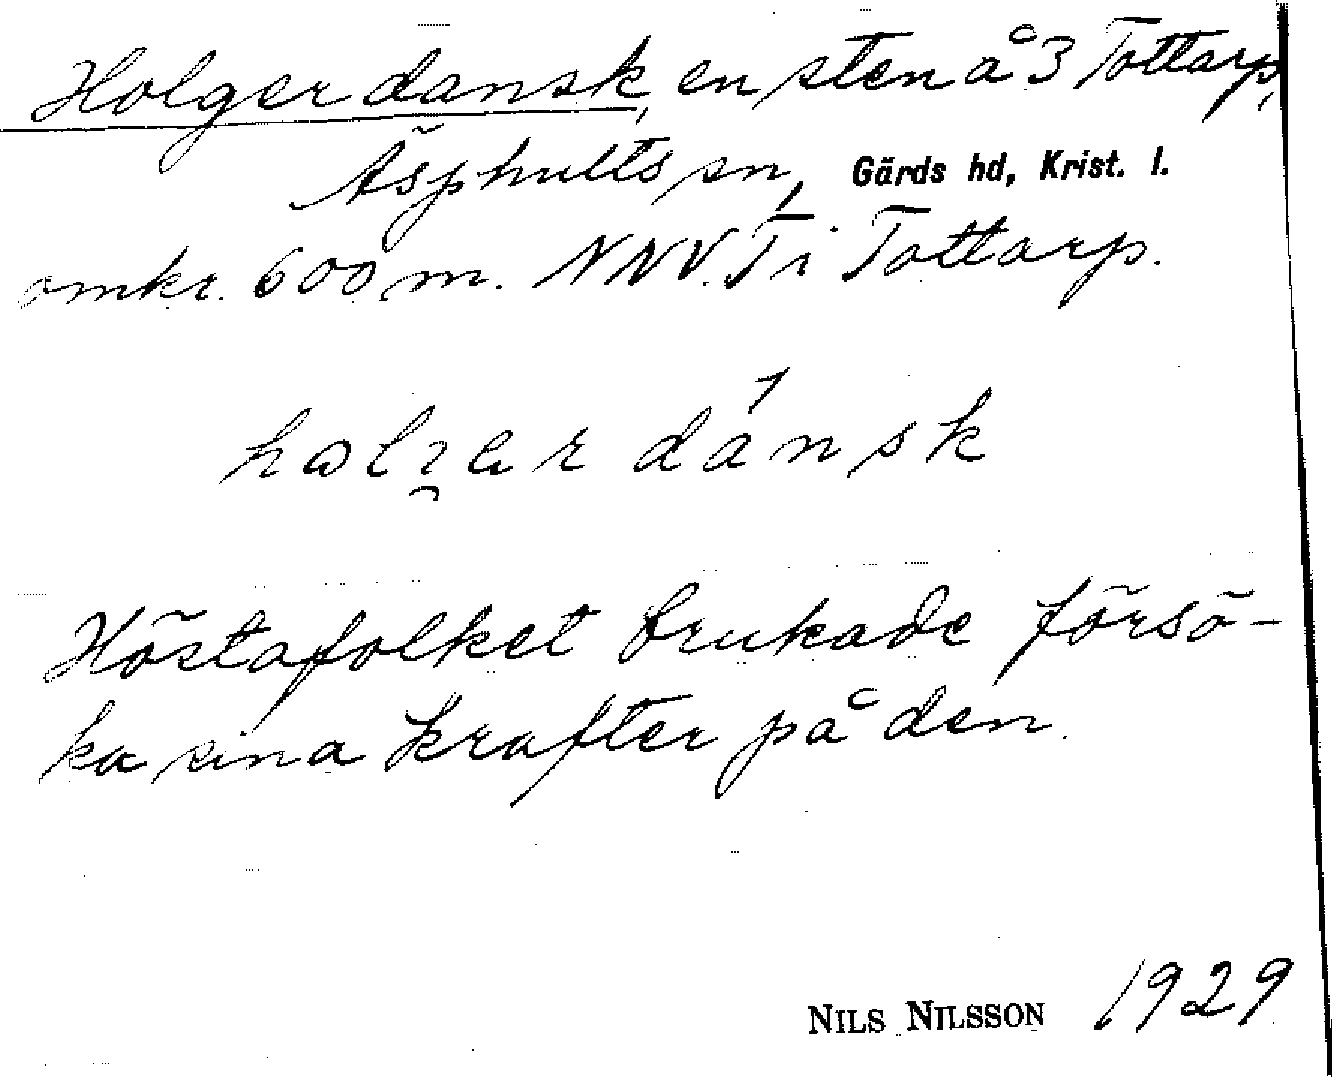 Holger dansk, en sten å 3 Tottarp,
Äsphults sn, Gärds hd, Krist. l.
omkr. 600 m. NNV. T i Tottarp.
hålgar dánsk
Höstafolket brukade försö-
ka sina krafter på den.
NILS NILSSON 1929